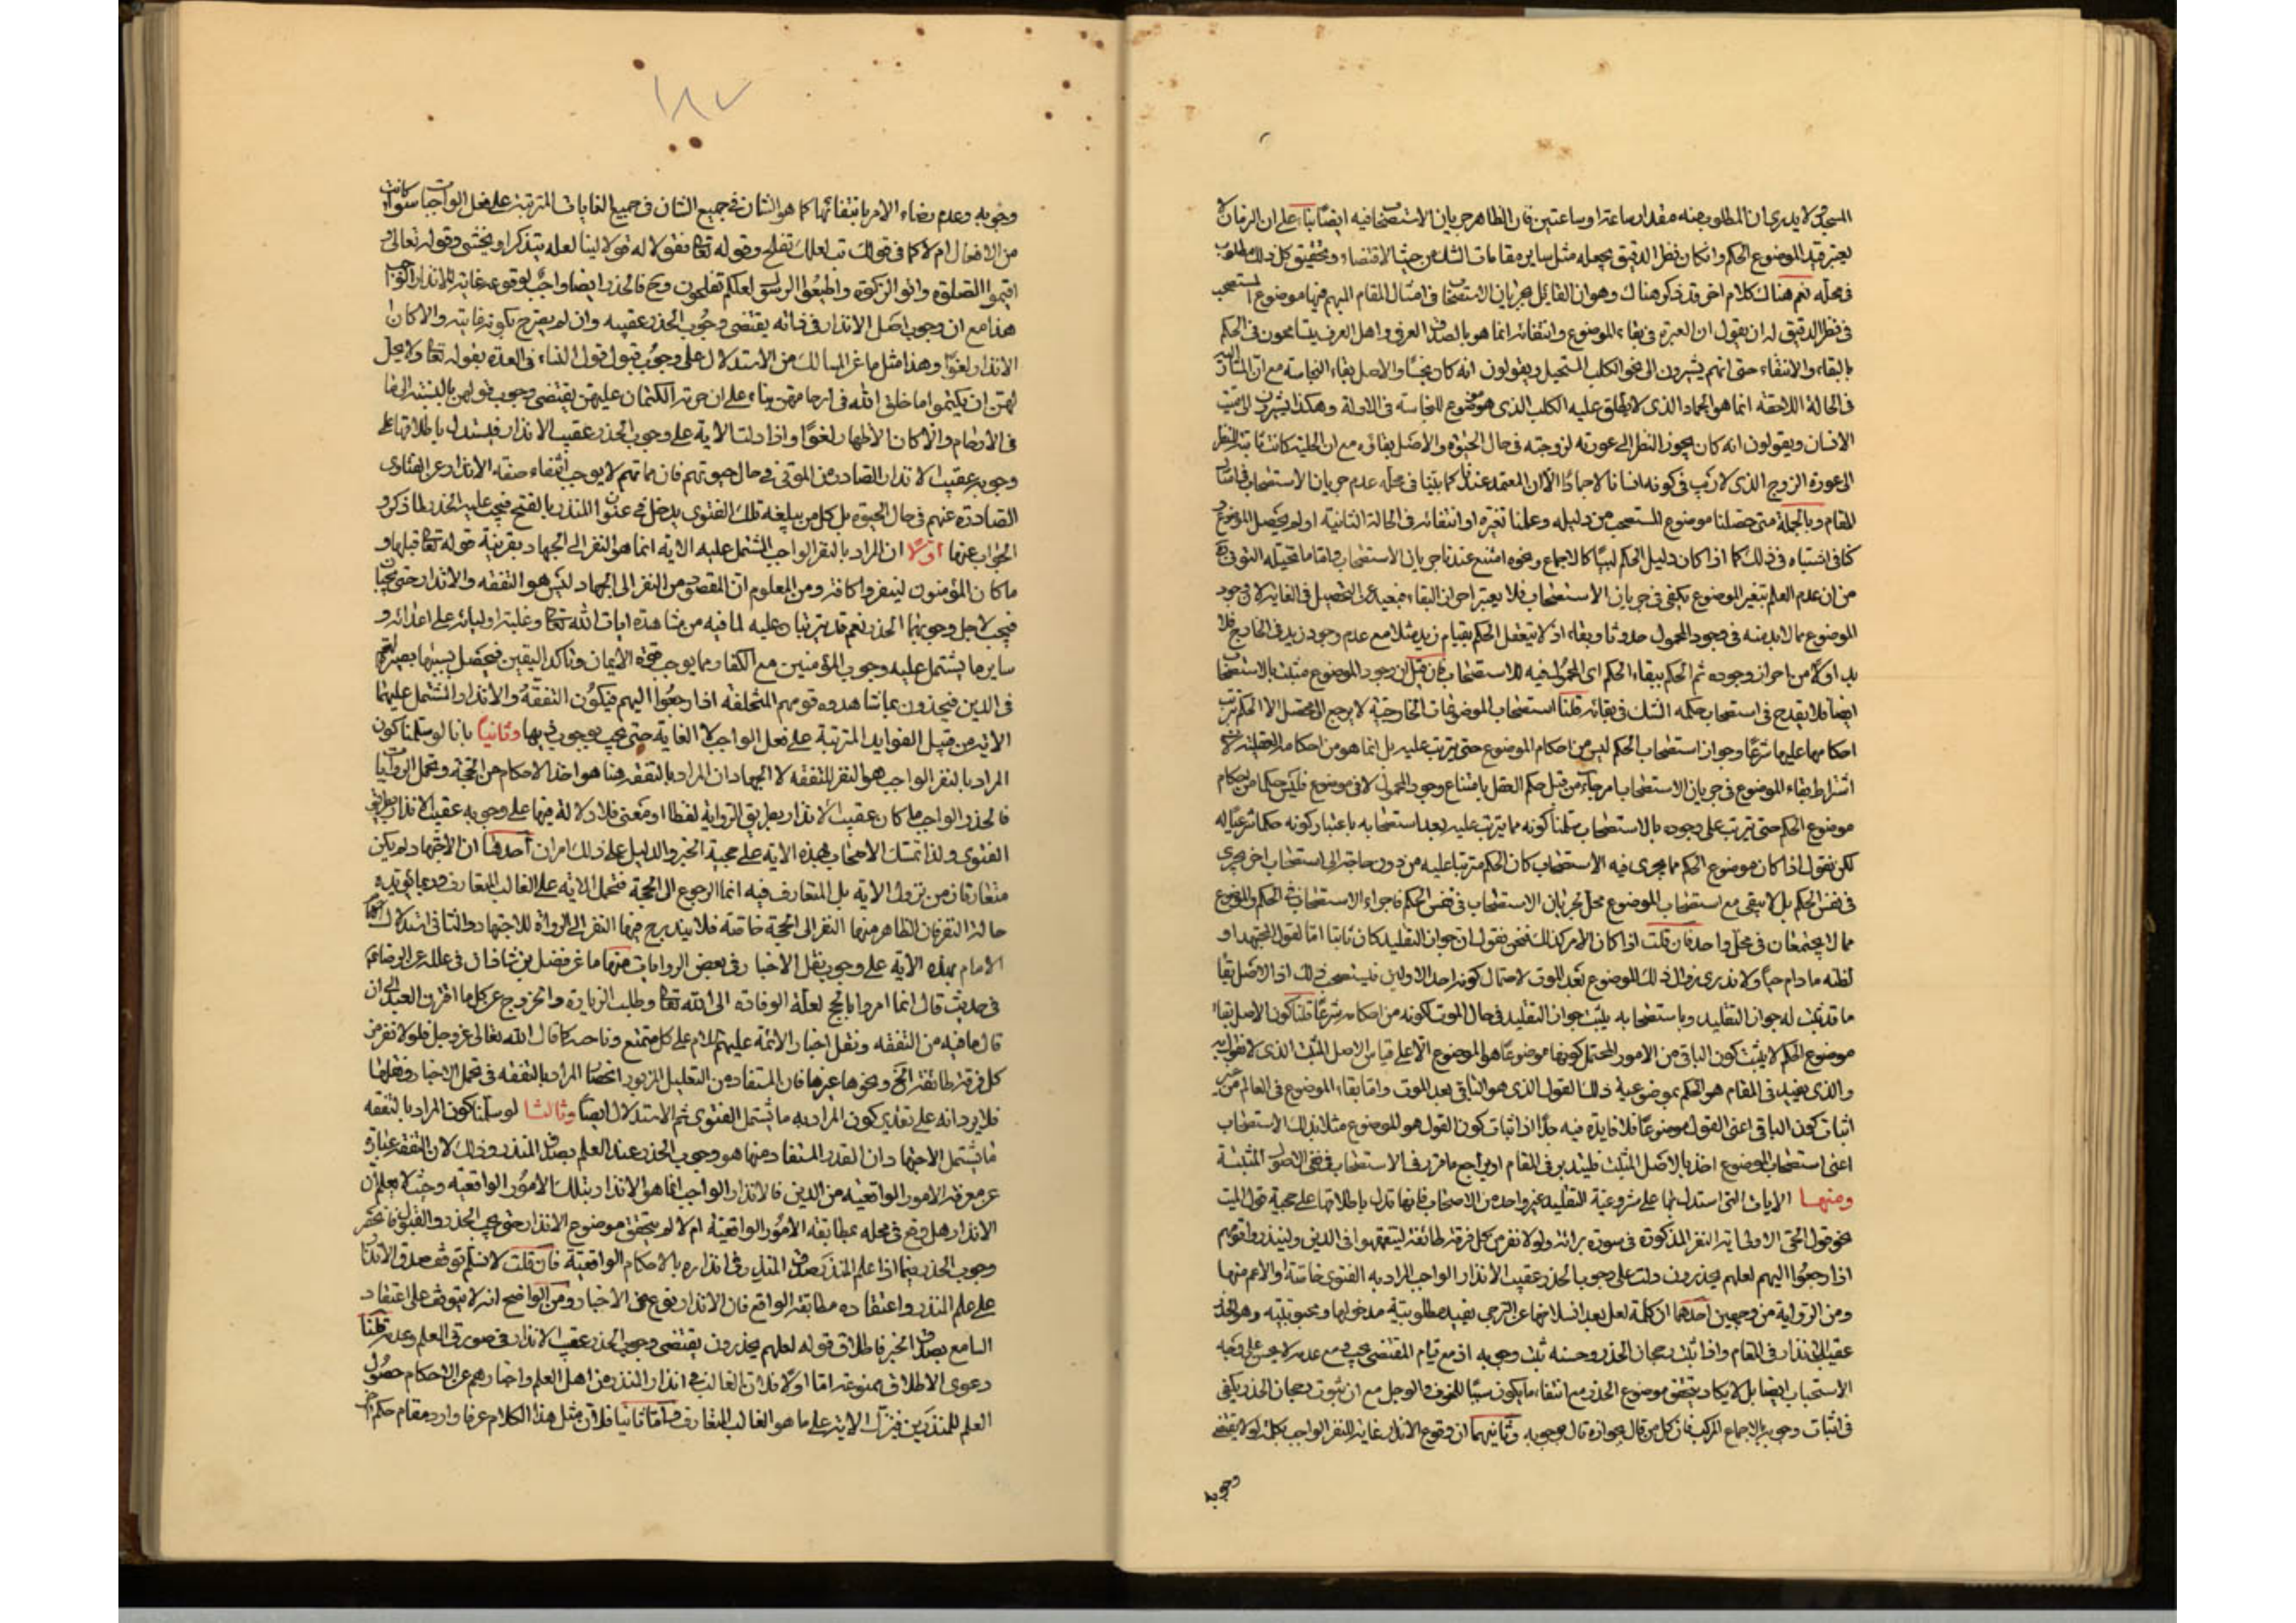 المسجد لا يدرى ان المطلوب منه مقدار ساعة او ساعتين فان الظاهر جريان الاستصحاب فيه ايضا بناء على ان الزمان لا
يعتبر قيد الموضوع الحكم وان كان نظر الدقيق يجعله مثل ساير مقامات الشك من حيث الاقتضاء وتحقيق كل ذلك مطلوب
فى محله نعم هناك كلام اخر قد ذكر هناك وهو ان القائل بجريان الاستصحاب فى امثال المقام المبهم فيها موضوع المستصحب
فى نظر الدقيق له ان يقول ان العبرة فى بقاء الموضوع وانتفائه انما هو بالصدق العرفى واهل العرف يتسامحون فى الحكم
بالبقاء والانتفاء حتى انهم يشيرون الى نحو الكلب المستحيل ويقولون انه كان نجسا والاصل بقاء النجاسة مع ان المشار اليه
فى الحالة اللاحقة انما هو الجماد الذى لا يطلق عليه الكلب الذى هو موضوع للنجاسة فى الادلة وهكذا يشيرون الى ميت
الانسان ويقولون انه كان يجوز النظر الى عورته لزوجته فى حال الحيوة والاصل بقائه مع ان الحلية كانت ثابتة للنظر
الى عورة الزوج الذى لا ريب فى كونه انسانا لا جمادا الا ان المعتمد عندنا كما بينا فى محله عدم جريان الاستصحاب فى امثال
المقام وبالجملة متى حصلنا موضوع المستصحب من دليله وعلمنا تغيره او انتفائه فى الحالة الثانية او لم يحصل الموضوع و
كنا فى اشتباه فى ذلك كما اذا كان دليل الحكم لبيا كالاجماع ونحوه امتنع عندنا جريان الاستصحاب واما ما تخيله التونى ره
من ان عدم العلم بتغير الموضوع يكفى فى جريان الاستصحاب فلا يعتبر احراز البقاء فبعيد عن التحصيل فى الغاية لان وجود
الموضوع مما لا بد منه فى وجود المحمول حدوثا وبقاء اذ لا يتعقل الحكم بقيام زيد مثلا مع عدم وجود زيد فى الخارج فلا
بد اولا من احراز وجوده ثم الحكم ببقاء الحكم اى المحمول فيه للاستصحاب فان قيل ان وجود الموضوع مثبت بالاستصحاب
ايضا فلا يقدح فى استصحاب حكمه الشك فى بقائه قلنا استصحاب الموضوعات الخارجية لا يرجع الى محصل الا الحكم بترتب
احكامها عليها شرعا وجواز استصحاب الحكم ليس من احكام الموضوع حتى يترتب عليه بل انما هو من احكامه العقلية لان
اشتراط بقاء الموضوع فى جريان الاستصحاب امر جاء من قبل حكم العقل بامتناع وجود المحمول لا فى موضوع فليس حكما من احكام
موضوع الحكم حتى يترتب على وجوده بالاستصحاب سلمنا كونه مما يترتب عليه بعد استصحابه باعتبار كونه حكما شرعيا له
لكن نقول اذا كان موضوع الحكم مما يجرى فيه الاستصحاب كان الحكم مترتبا عليه من دون حاجة الى استصحاب اخر يجرى
فى نفس الحكم بل لا يبقى مع استصحاب الموضوع محل لجريان الاستصحاب فى نفس الحكم فاجراء الاستصحاب فى الحكم والموضوع
مما لا يجتمعان فى محل واحد فان قلت اذا كان الامر كذلك فنحن نقول ان جواز التقليد كان ثابتا اما لقول المجتهد او
لظنه ما دام حيا ولا ندرى زوال ذلك الموضوع بعد الموت لاحتمال كونه احد الاولين فليستصحب ذلك اذ الاصل بقا
ما قد ثبت له جواز التقليد وباستصحابه يثبت جواز التقليد فى حال الموت لكونه من احكامه شرعا قلنا كون الاصل بقاء
موضوع الحكم لا يثبت كون الباقى من الامور المحتمل كونها موضوعا هو الموضوع الا على قياس الاصل المثبت الذى لا نقول به
والذى يفيد فى المقام هو الحكم بموضوعية ذلك القول الذى هو الباقى بعد الموت واما بقاء الموضوع فى العالم من غير
اثبات كون الباقى اعنى القول موضوعا فلا فايدة فيه جدا اذ اثبات كون القول هو الموضوع مثلا بذلك الاستصحاب
اعنى استصحاب الموضوع اخذ بالاصل المثبت فليتدبر فى المقام او يراجع ما قرر فى الاستصحاب فى نفى الاصول المثبتة
ومنها الايات التى استدل بها على مشروعية التقليد غير واحد من الاصحاب فانها تدل باطلاقها على حجية قول الميت
نحو قول الحى الاولى اية النفر المذكورة فى سورة برائة ولولا نفر من كل فرقة طائفة ليتفقهوا فى الدين ولينذروا قومهم
اذا رجعوا اليهم لعلهم يحذرون دلت على وجوب الحذر عقيب الانذار الواجب المراد به الفتوى خاصة او الاعم منها
ومن الرواية من وجهين احدهما ان كلمة لعل بعد انسلاخها عن الترجى تفيد مطلوبية مدخولها ومحبوبيته وهو الحذر
عقيب الانذار فى المقام واذا ثبت رجحان الحذر وحسنه ثبت وجوبه اذ مع قيام المقتضى يجب ومع عدمه لا يحسن على وجه
الاستحباب ايضا بل لا يكاد يتحقق موضوع الحذر مع انتفاء ما يكون سببا للخوف والوجل مع ان ثبوت رجحان الحذر يكفى
فى اثبات وجوبه بالاجماع المركب فان كل من قال بجوازه قال بوجوبه وثانيهما ان وقوع الانذار غاية النفر الواجب بكلمة لولا يقتضى
وجوبه
١٨٧
وجوبه وعدم رضاء الامر بانتفائها كما هو الشان فى جميع الشان فى جميع الغايات المترتبة على فعل الواجبات سواء كانت
من الافعال ام لا كما فى قولك تب لعلك تفلح وقوله تعا فقولا له قولا لينا لعله يتذكر او يخشى وقوله تعالى و
اقيموا الصلوة واتوا الزكوة واطيعوا الرسول لعلكم تفلحون وح فالحذر ايضا واجب لوقوعه غاية للانذار الواجب
هذا مع ان وجوب اصل الانذار فى ذاته يقتضى وجوب الحذر عقيبه وان لم يصرح بكونه غايته والا كان
الانذار لغوا وهذا مثل ما عن المسالك من الاستدلال على وجوب قبول قول النساء فى العدة بقوله تعا ولا يحل
لهن ان يكتمن ما خلق الله فى ارحامهن بناء على ان حرمة الكتمان عليهن يقتضى وجوب قولهن بالنسبة الى ما
فى الارحام والا كان الاظهار لغوا واذا دلت الاية على وجوب الحذر عقيب الانذار فليستدل باطلاقها على
وجوبه عقيب الانذار الصادر من الموتى فى حال حيوتهم فان مماتهم لا يوجب انتفاء صفة الانذار عن الفتاوى
الصادرة عنهم فى حال الحيوة بل كل من يبلغه تلك الفتوى يدخل فى عنوان المنذر بالفتح فيجب عليه الحذر لما ذكر و
الجواب عنها اولا ان المراد بالنفر الواجب المشتمل عليه الاية انما هو النفر الى الجهاد بقرينة قوله تعا قبلها و
ما كان المؤمنون لينفروا كافة ومن المعلوم ان المقصود من النفر الى الجهاد ليس هو التفقه والانذار حتى يجبا
فيجب لاجل وجوبهما الحذر نعم قد يترتبان عليه لما فيه من مشاهدة ايات الله تعا وغلبة اوليائه على اعدائه و
ساير ما يشتمل عليه وجوب المؤمنين مع الكفار مما يوجب قوة الايمان وتاكد اليقين فيحصل بسببها بصيرتهم
فى الدين فيحذرون بما شاهدوه قومهم المتخلفة اذا رجعوا اليهم فيكون التفقه والانذار المشتمل عليهما
الاية من قبيل الفوايد المترتبة على فعل الواجب لا الغاية حتى يجب بوجوب ذيها وثانيا بانا لو سلمنا كون
المراد بالنفر الواجب هو النفر للتفقه لا الجهاد ان المراد بالتفقه هنا هو اخذ الاحكام من الحجة وتحمل الروايات
فالحذر الواجب ما كان عقيب الانذار بطريق الرواية لفظا او معنى فلا دلالة فيها على وجوبه عقيب الانذار بطريق
الفتوى ولذا تمسك الاصحاب بهذه الاية على حجية الخبر والدليل على ذلك امران احدهما ان الاجتهاد لم يكن
متعارفا زمن نزول الاية بل المتعارف فيه انما الرجوع الى الحجة فتحمل الاية على الغالب المتعارف وربما يؤيده
حالة النفر فان الظاهر منها النفر الى الحجة خاصة فلا يندرج فيها النفر الى الرواة للاجتهاد والثانى استدلال
الامام بهذه الاية على وجوب نقل الاخبار فى بعض الروايات منها ما عن فضل بن شاذان فى علله عن الرضا عم
فى حديث قال انما امروا بالحج لعلة الوفادة الى الله تعا وطلب الزيادة والخروج عن كل ما اقترف العبد الى ان
قال ما فيه من التفقه ونقل اخبار الائمة عليهم السلام على كل صقع وناحية كما قال الله تعالى عز وجل فلولا نفر من
كل فرقة طائفة الخ ونحوها غيرها فان المستفاد من التعليل المزبور انحصار المراد بالتفقه فى تحمل الاخبار ونقلها
فلا يرد انه على تقدير كون المراد به ما يشتمل الفتوى يتم الاستدلال ايضا وثالثا لو سلمنا كون المراد بالتفقه
ما يشتمل الاجتهاد ان القدر المستفاد منها هو وجوب الحذر عند العلم بصدق المنذر وذلك لان التفقه عبارة
عن معرفة الامور الواقعية من الدين فالانذار الواجب انما هو الانذار بتلك الامور الواقعية وحيث لا يعلم ان
الانذار هل وقع فى محله بمطابقة الامور الواقعية ام لا لم يتحقق موضوع الانذار حتى يجب الحذر والقبول فانحصر
وجوب الحذر فيما اذا علم المنذر صدق المنذر فى انذاره بالاحكام الواقعية فان قلت لا نسلم توقف صدق الانذار
على علم المنذر واعتقاده مطابقة الواقع فان الانذار نوع من الاخبار ومن الواضح انه لا يتوقف على اعتقاد
السامع بصدق الخبر فاطلاق قوله لعلهم يحذرون يقتضى وجوب الحذر عقيب الانذار فى صورتى العلم وعدمه قلنا
دعوى الاطلاق ممنوعة اما اولا فلان الغالب فى انذار المنذر من اهل العلم واخبارهم عن الاحكام حصول
العلم للمنذرين فينزل الاية على ما هو الغالب المتعارف واما ثانيا فلان مثل هذا الكلام عرفا وارد مقام حكم اخر